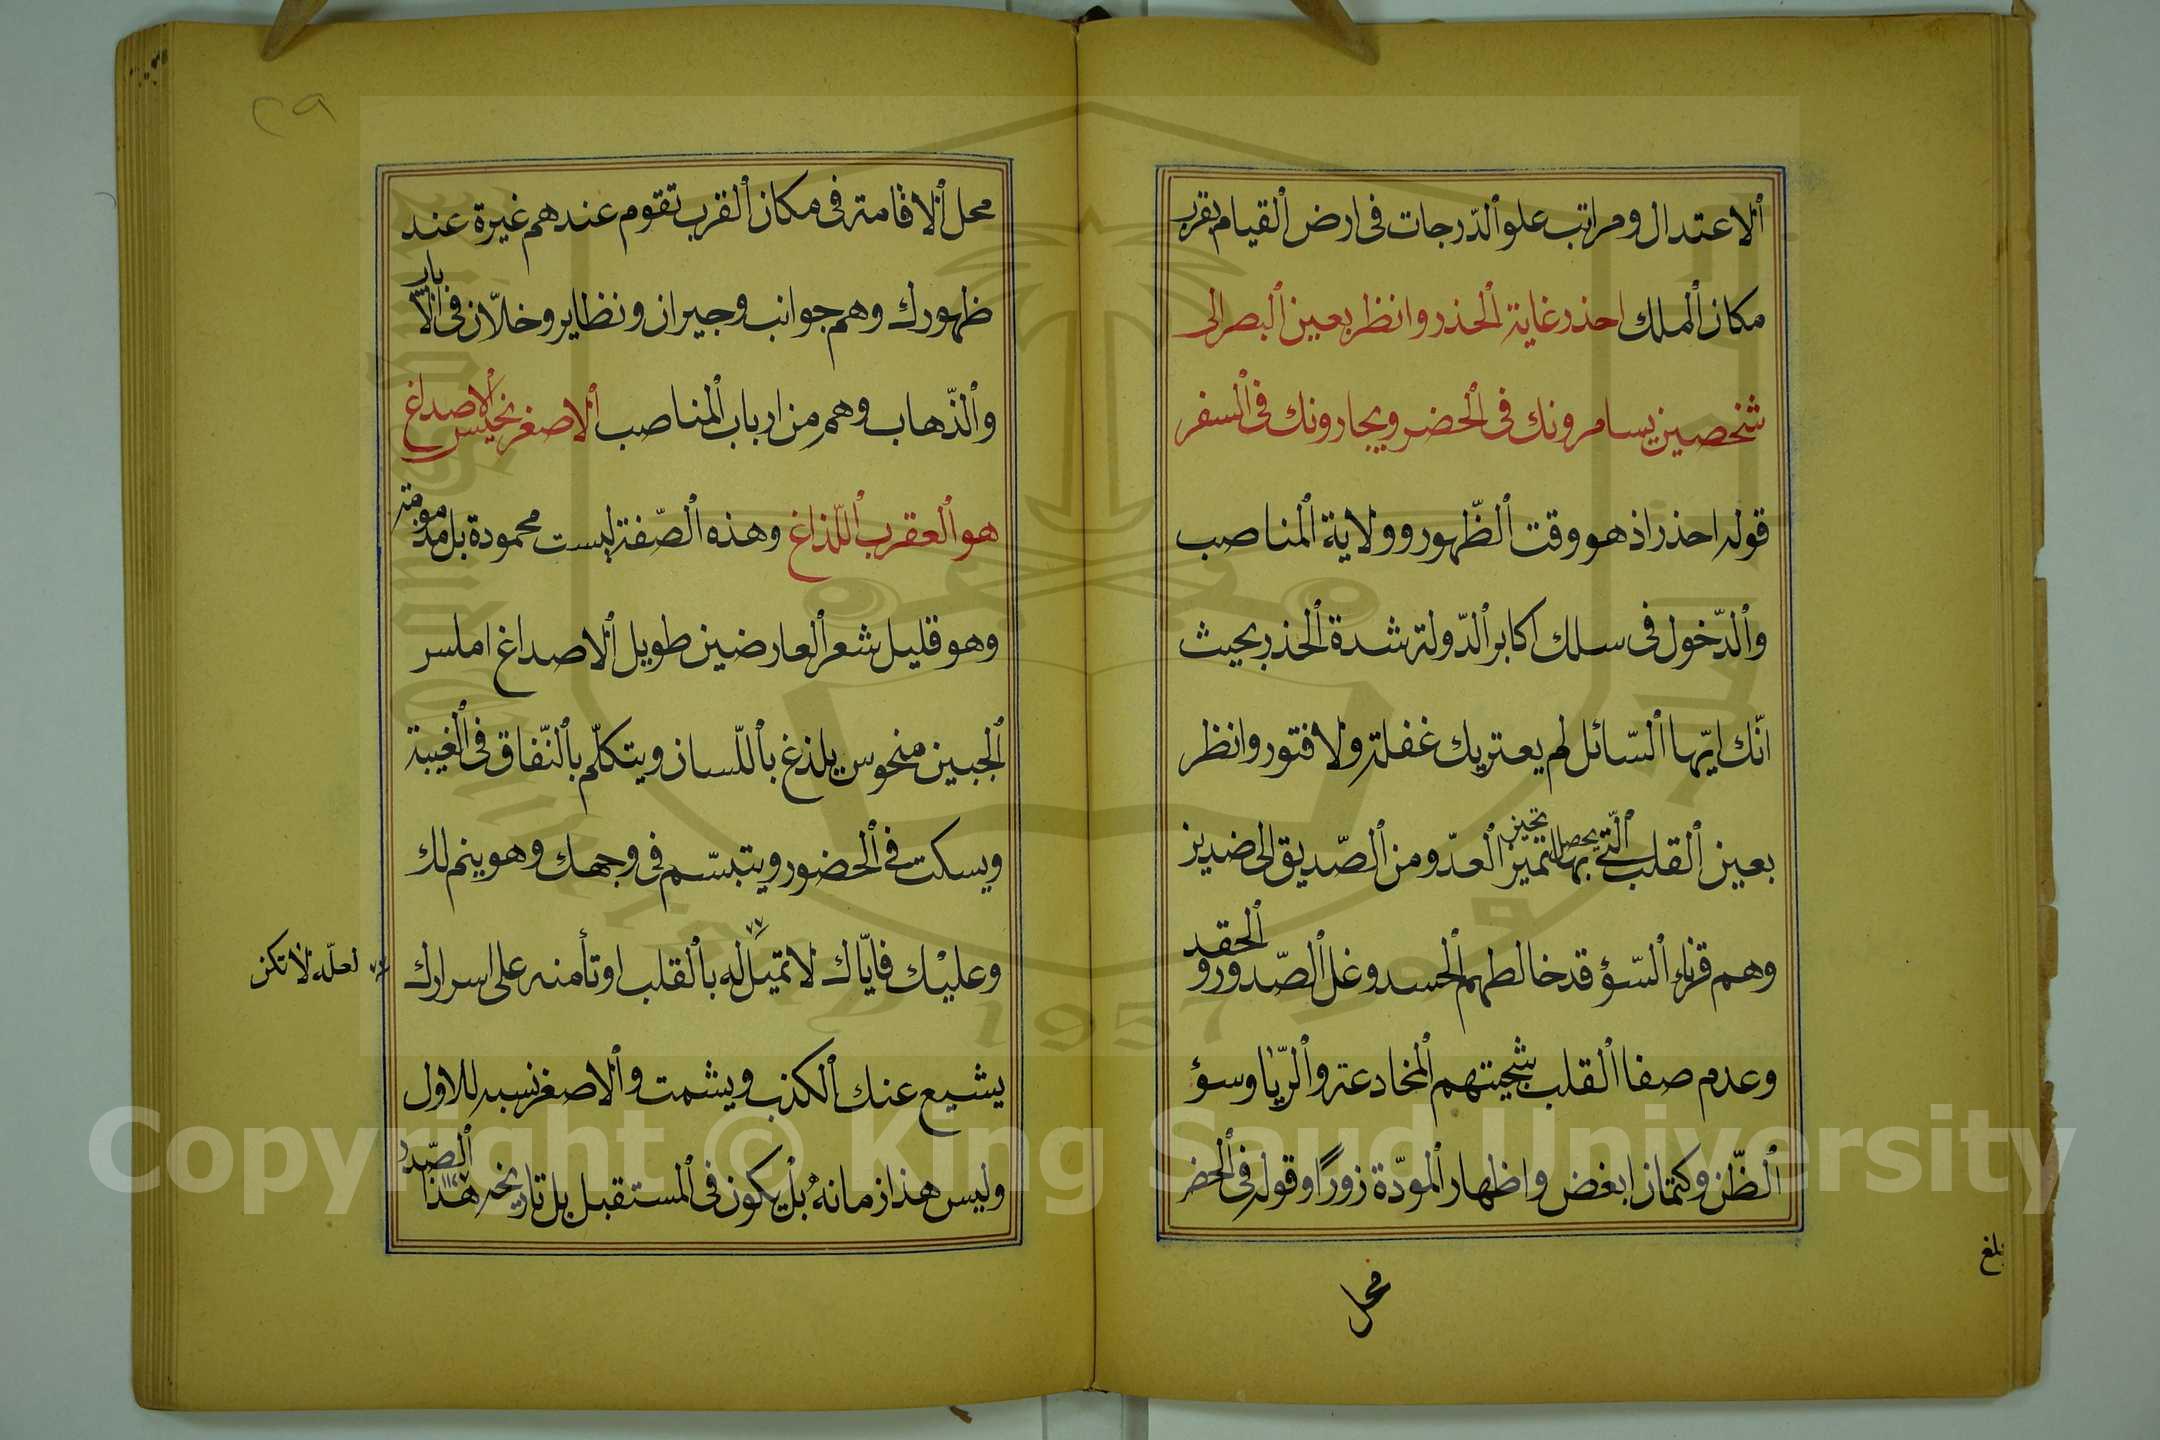 الاعتدال ومراتب علو الدّرجات فى ارض القيام بقرب
مكان الملك احذر غاية الحذر وانظر بعين البصر الى
شخصين يسامرونك فى الحضر ويجارونك فى السفر
قوله احذر اذ هو وقت الظّهور وولاية المناصب
والدّخول فى سلك اكابر الدّولة شدة الحذر بحيث
انّك ايّها السّائل لم يعتريك غفلة ولا فتور وانظر
بعين القلب الّتى يحصل بها تمييز العدّو من الصّديق الى ضدين
وهم قرناء السّؤ قد خالطهم الحسد وغل الصّدور والحقد
وعدم صفا القلب شجيتهم المخادعة والرّيا وسؤ
الظّن وكتمان ابغض واظهار المودّة زورًا وقوله فى الحضر
محل
بلغ
٢٩
محل الاقامة فى مكان القرب تقوم عندهم غيرة عند
ظهورك وهم جوانب وجيران ونظاير وخلّان فى الاياب
والذّهاب وهم من ارباب المناصب الاصغر نحيس الاصداغ
هو العقرب اللّذاغ وهذه الصّفة ليست محمودة بل مذمومة
وهو قليل شعر العارضين طويل الاصداغ املس
الجبين منحوس يلذغ باللّسان ويتكلّم بالنّفاق فى الغيبة
ويسكت فى الحضور ويتبسّم فى وجهك وهو ينم لك
وعليْك فايّاك لا تميل له بالقلب او تأمنه على اسرارك
لعلّه لا تكن
يشيع عنك الكذب ويشمت والاصغر نسبه للاول
وليس هذا زمانهُ بل يكون فى المستقبل بل تاريخه هذا الصّدد
Copyright © King Saud University
1957